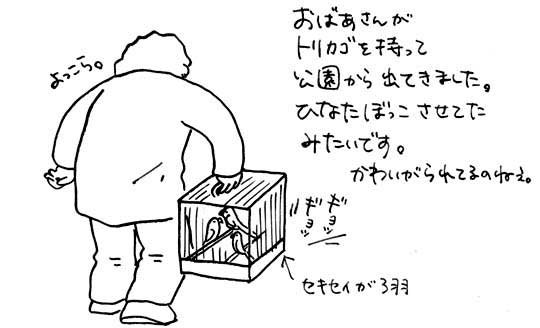 おばあさんが
トリカゴを持って
公園から出てきました。
ひなたぼっこさせてた
みたいです。
かわいがられてるのねぇ。
よっこら。
ギョッ
ギョッ
セキセイが3羽